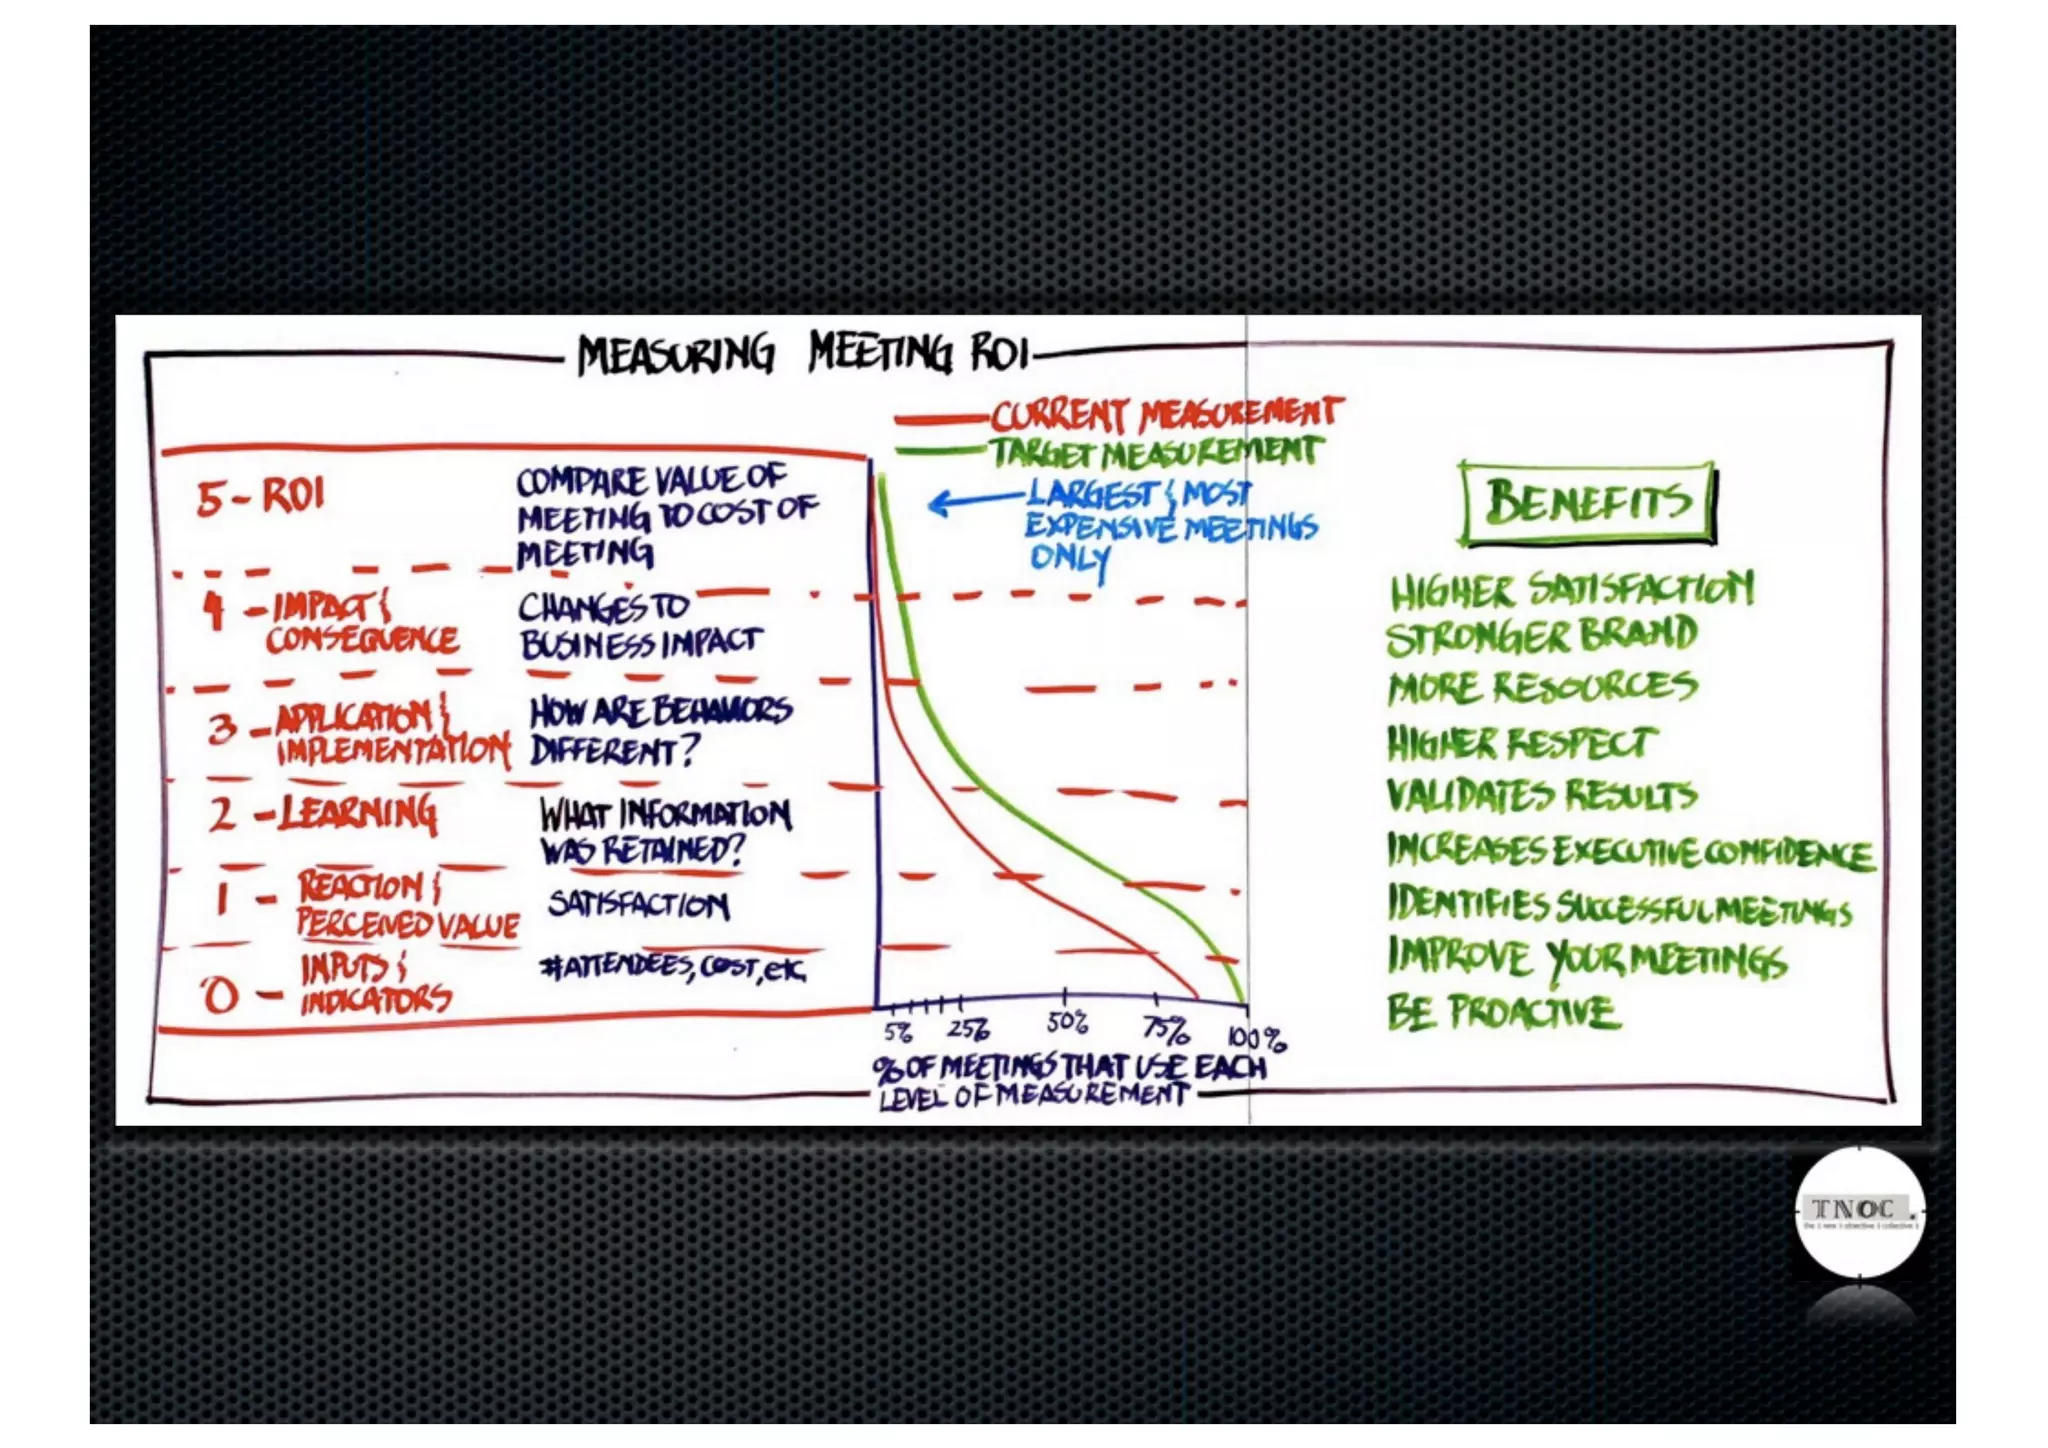 MEASURING MEETING ROI
CURRENT MEASUREMENT
TARGET MEASUREMENT
LARGEST & MOST
EXPENSIVE MEETINGS
ONLY
5 - ROI
COMPARE VALUE OF
MEETING TO COST OF
MEETING
4 - IMPACT &
CONSEQUENCE
CHANGES TO
BUSINESS IMPACT
3 - APPLICATION &
IMPLEMENTATION
HOW ARE BEHAVIORS
DIFFERENT?
2 - LEARNING
WHAT INFORMATION
WAS RETAINED?
1 - REACTION &
PERCEIVED VALUE
SATISFACTION
0 - INPUTS &
INDICATORS
#ATTENDEES, COST, etc
5% 25% 50% 75% 100%
% OF MEETINGS THAT USE EACH
LEVEL OF MEASUREMENT
BENEFITS
HIGHER SATISFACTION
STRONGER BRAND
MORE RESOURCES
HIGHER RESPECT
VALIDATES RESULTS
INCREASES EXECUTIVE CONFIDENCE
IDENTIFIES SUCCESSFUL MEETINGS
IMPROVE YOUR MEETINGS
BE PROACTIVE
TNOC .
the | new | objective | collective |